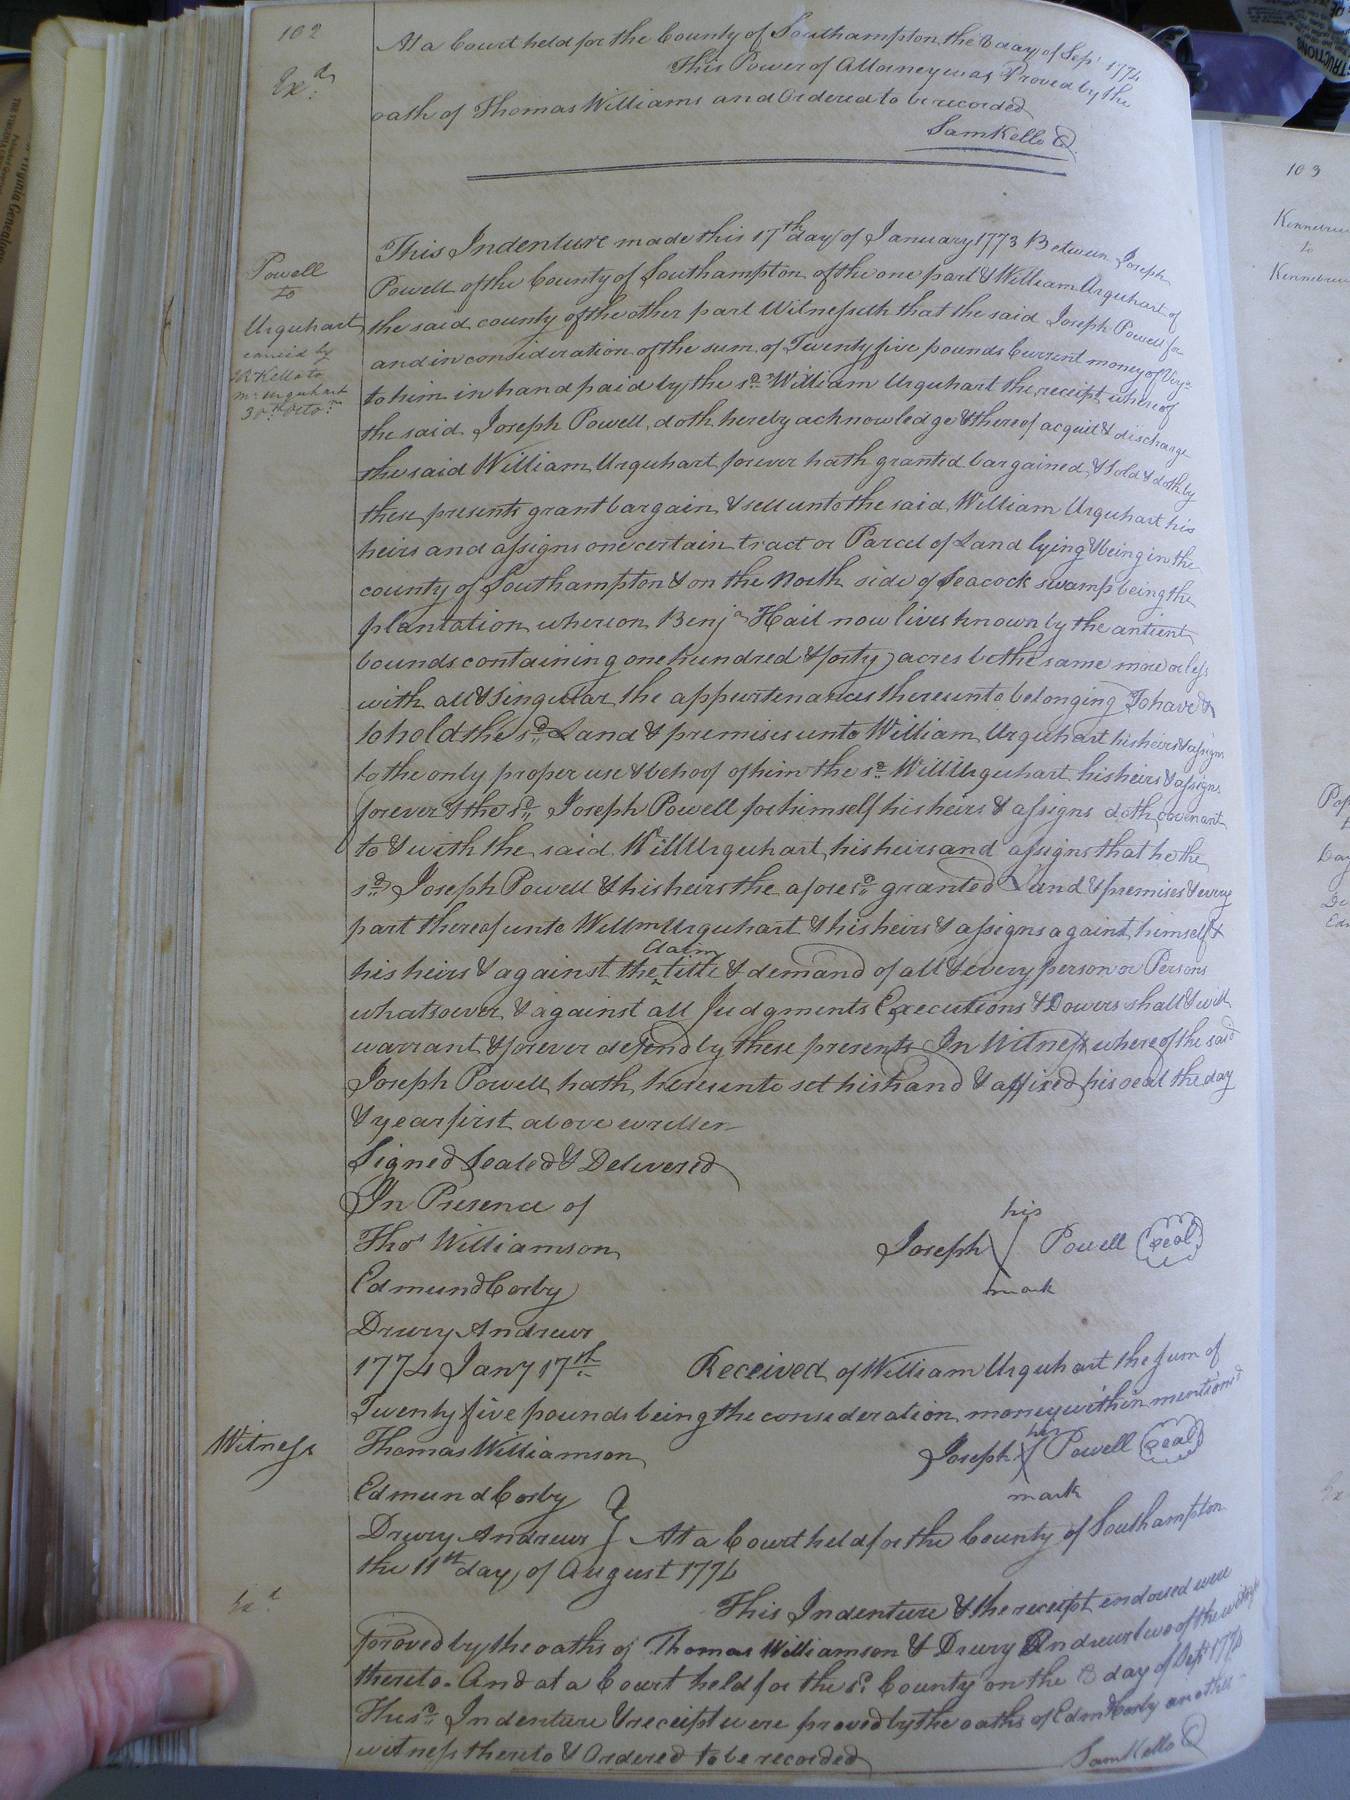 102
At a Court held for the County of Southampton, the 8 day of Sept 1774
Exd
This Power of Attorney was Proved by the
oath of Thomas Williams and Ordered to be recorded
Sam Kello C.
Powell
to
Urquhart
mr Urquhart
30th Octo:
This Indenture made this 17th day of January 1773 Between Joseph
Powell of the County of Southampton of the one part & William Urquhart of
the said county of the other part Witnesseth that the said Joseph Powell for
and in consideration of the sum of Twenty five pounds Current money of Virga
to him in hand paid by the sd William Urquhart the receipt whereof
the said Joseph Powell, doth hereby acknowledge & thereof acquit & discharge
the said William Urquhart forever hath granted bargained & sold & doth by
these presents grant bargain & sell unto the said William Urquhart his
heirs and assigns one certain tract or Parcel of Land lying & being in the
county of Southampton & on the North side of Seacock swamp being the
plantation whereon Benja Hail now lives known by the antient
bounds containing one hundred & forty acres be the same more or less
with all & singular the appurtenances thereunto belonging To have &
to hold the sd Land & premises unto William Urquhart his heirs & assigns
to the only proper use & behoof of him the sd Will Urquhart his heirs & assigns
forever & the sd Joseph Powell for himself his heirs & assigns doth covenant
to & with the said Will Urquhart, his heirs and assigns that he the
sd Joseph Powell & his heirs the aforesd granted Land & premises & every
part thereof unto Willm Urquhart & his heirs & assigns against himself &
claim
his heirs & against the title & demand of all & every person or Persons
whatsoever & against all Judgments Executions & Dowers shall & will
warrant & forever defend by these presents In Witness whereof the said
Joseph Powell hath hereunto set his hand & affixed his seal the day
& year first above written
Signed Sealed & Delivered
In Presence of
Thos Williamson
Edmund Corby
Drury Andrews
his
Joseph X Powell (seal)
mark
1774 Jany 17th Received of William Urquhart the sum of
Twenty five pounds being the consideration money within mentiond
Witness Thomas Williamson
Edmund Corby
Drury Andrews
his
Joseph X Powell (seal)
mark
At a Court held for the County of Southampton
the 11th day of August 1774
Exd
This Indenture & the receipt endorsed were
proved by the oaths of Thomas Williamson & Drury Andrews two of the witness
thereto. And at a Court held for the sd County on the 8 day of Sept 1774
This sd Indenture & receipt were proved by the oaths of Edmd Corby another
witness thereto & Ordered to be recorded
Sam Kello C
103
to